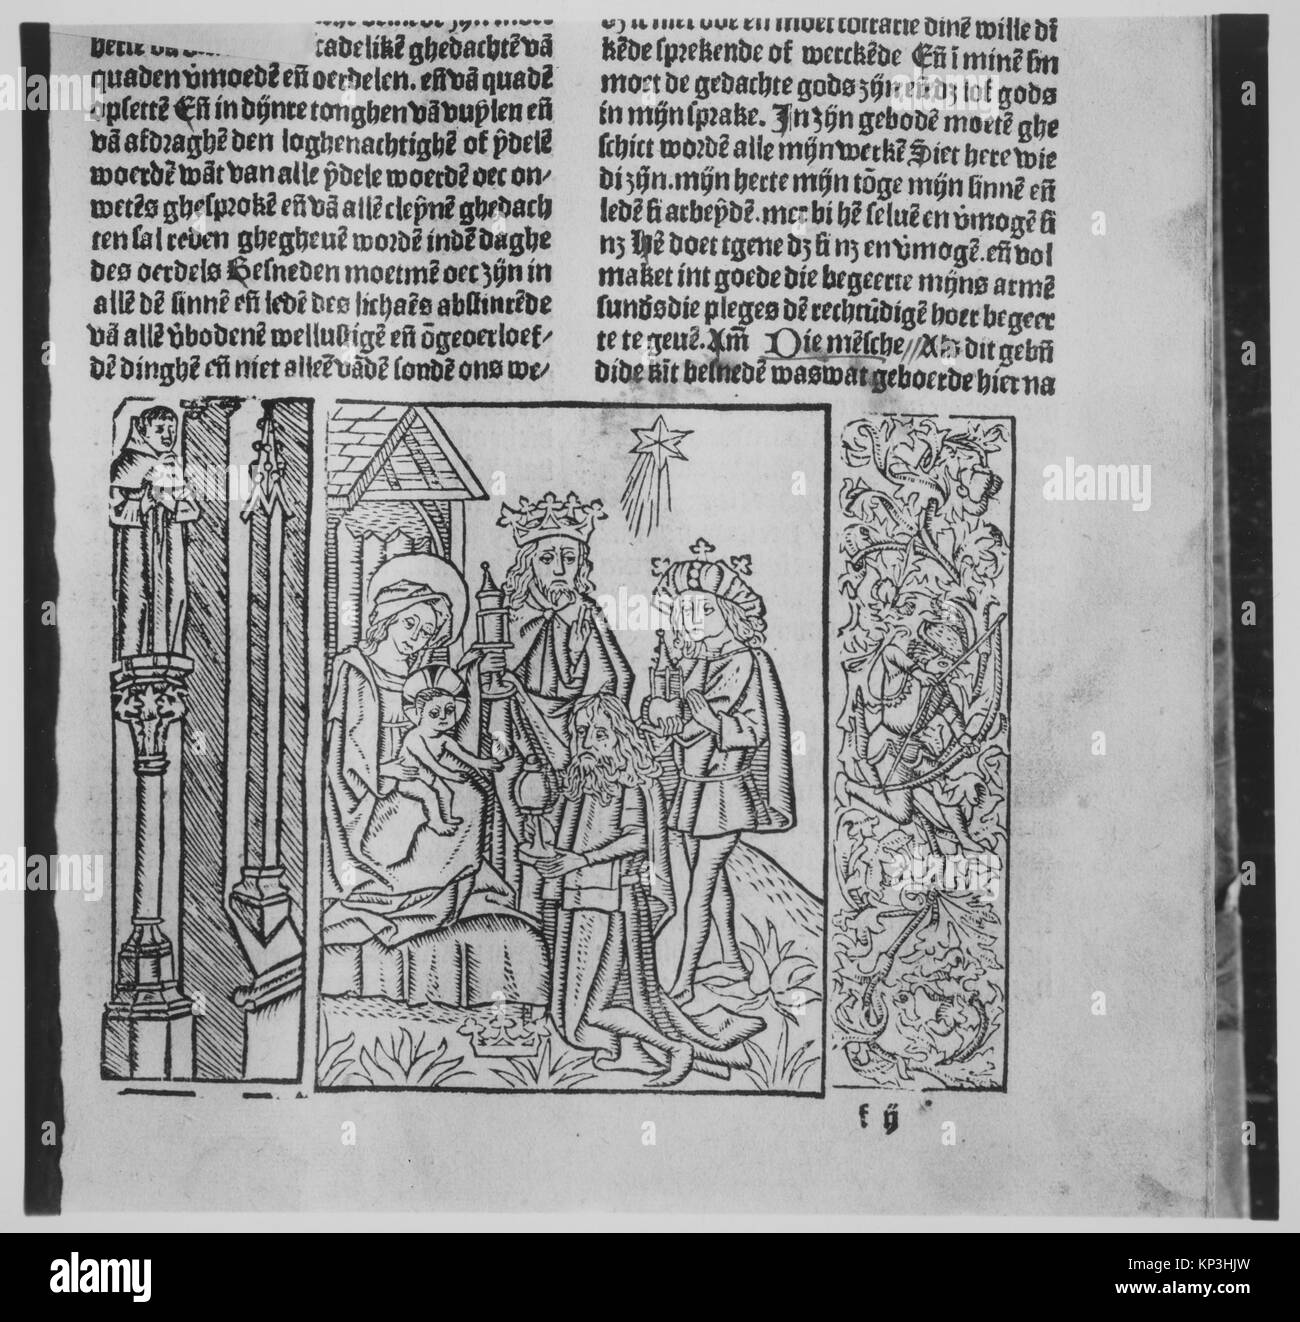 tadelikē ghedachtē vā
quaden v̓moedē eñ oerdelen. eñ vā quadē
opsettē Eñ in dijnre tonghen vā vuÿlen eñ
vā afdraghē den loghenachtighē of ÿdelē
woerdē wāt van alle ÿdele woerdē oec on/
wetēs ghesprokē eñ vā allē cleÿnē ghedach
ten sal reden ghegheuē wordē indē daghe
des oerdels Besneden moetmē oec zijn in
allē dē sinnē eñ ledē des lichaēs abstinēde
vā allē v̓bodenē wellustigē eñ ōgeoerloef/
dē dinghē eñ niet alleē vādē sondē ons we/
kēde sprekende of werckēde Eñ ī minē sin
moet de gedachte gods zijn eñ dz lof gods
in mijn sprake. In zijn gebodē moetē ghe
schict wordē alle mijn werkē Siet here wie
di zijn. mijn herte mijn tōge mijn sinnē eñ
ledē si arbeÿdē. met bi hē seluē en v̓mogē si
nz Hē doet tgene dz si nz en v̓mogē. eñ vol
maket int goede die begeerte mijns armē
sunds die pleges dē rechtūdigē hoer begeer
te te geuē. Am̄ Die mēsche // Als dit gebn̄
di de kīt besnedē was wat geboerde hier na
f ij
alamy
KP3HJW
www.alamy.com